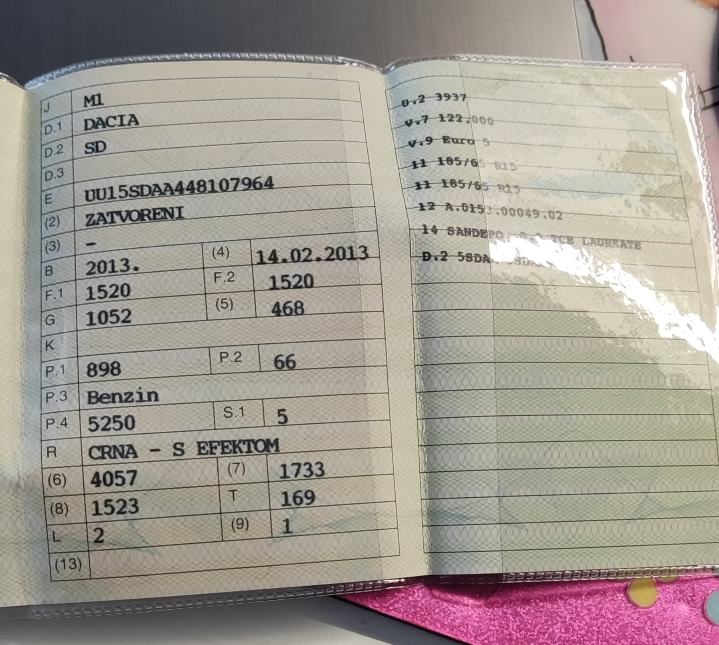 J M1
D.1 DACIA
D.2 SD
D.3
E UU15SDAA448107964
(2) ZATVORENI
(3) -
B 2013. (4) 14.02.2013
F.1 1520 F.2 1520
G 1052 (5) 468
K
P.1 898 P.2 66
P.3 Benzin
P.4 5250 S.1 5
R CRNA - S EFEKTOM
(6) 4057 (7) 1733
(8) 1523 T 169
L 2 (9) 1
(13)
U.2 3937
V.7 122,000
V.9 Euro 5
11 185/65 R15
11 185/65 R15
12
14 SANDERO TCE LAUREATE
D.2